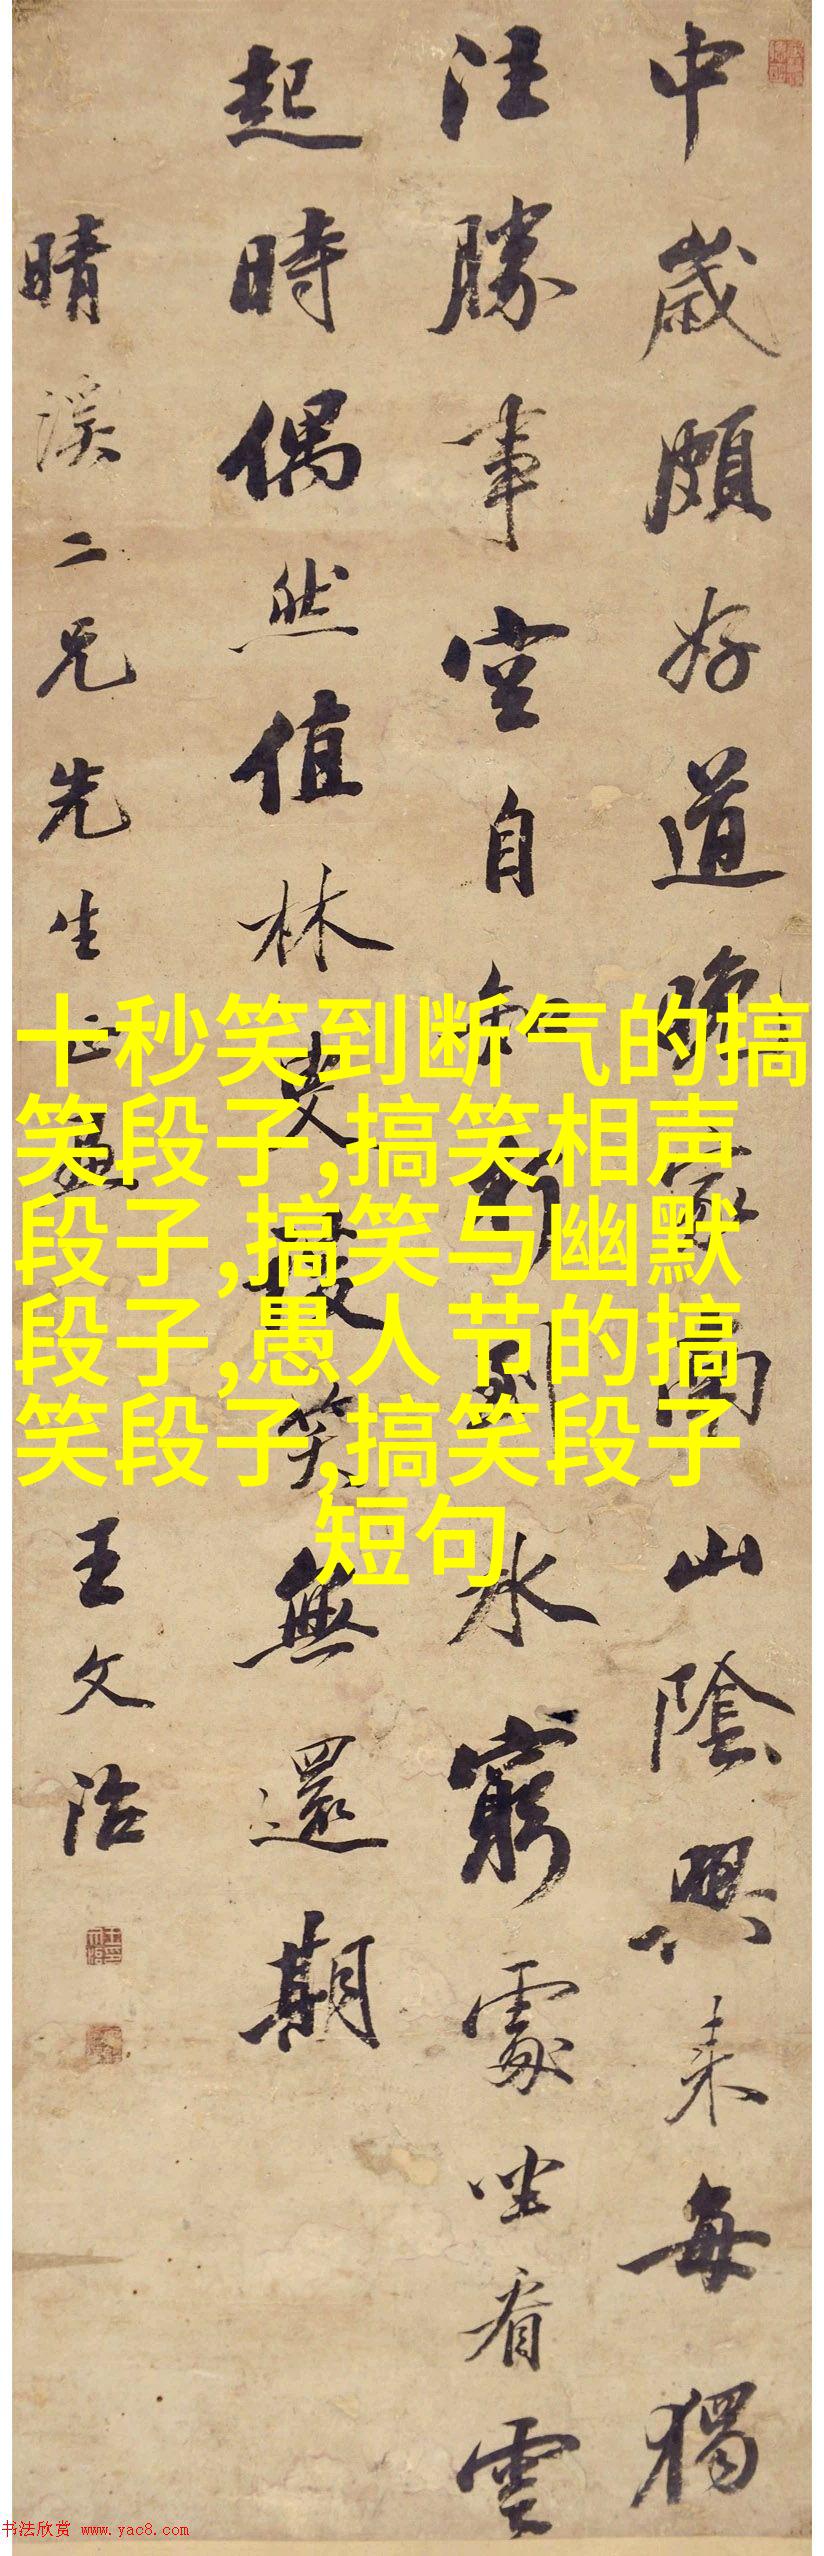 中歲頗好道晚家南山陰興來每獨
往勝事空自知行到水窮處坐看雲
起時偶然值林叟笑無還期
晴溪二兄先生正
王文治
十秒笑到断气的搞
笑段子,搞笑相声
段子,搞笑与幽默
段子,愚人节的搞
笑段子,搞笑段子
短句
书法欣赏 www.yac8.com